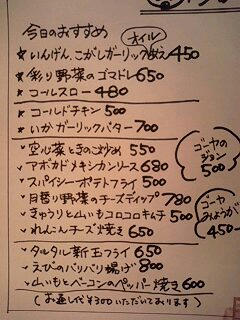 今日のおすすめ
オイル
★ いんげん、こがしガーリック和え 450
★ 彩り野菜のゴマドレ 650
★ コールスロー 480
★ コールドチキン 500
★ いかガーリックバター 700
✓ 空心菜ときのこ炒め 550
✓ アボカドメキシカンソース 680
✓ スパイシーポテトフライ 500
✓ 月替り野菜のチーズディップ 780
✓ きゅうりと山いもコロコロキムチ 500
✓ れんこんチーズ焼き 650
ゴーヤの
500
ゴーヤ
みょうが
450
✓ タルタル新玉フライ 650
✓ えびのパリパリ揚げ 800
✓ 山いもとベーコンのペッパー焼き 600
(お通し代¥300いただいております)